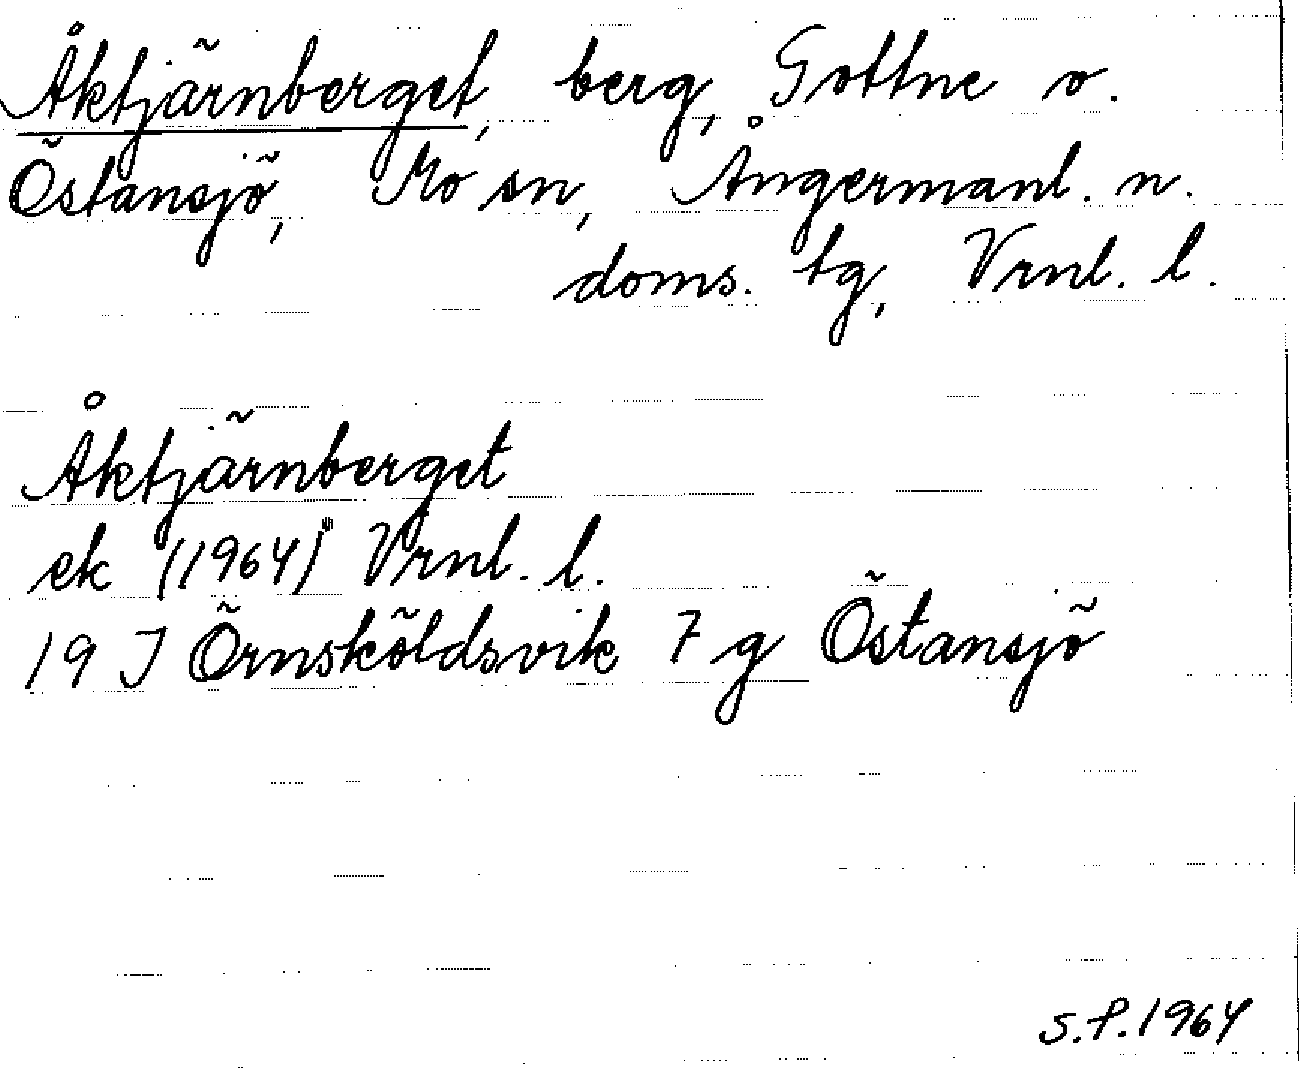 Åktjärnberget, berg, Gottne o.
Östansjö, Mo sn, Ångermanl. n.
doms. tg, Vrnl. l.
Åktjärnberget
ek (1964) Vrnl. l.
19 J Örnsköldsvik 7 g Östansjö
S.P. 1964